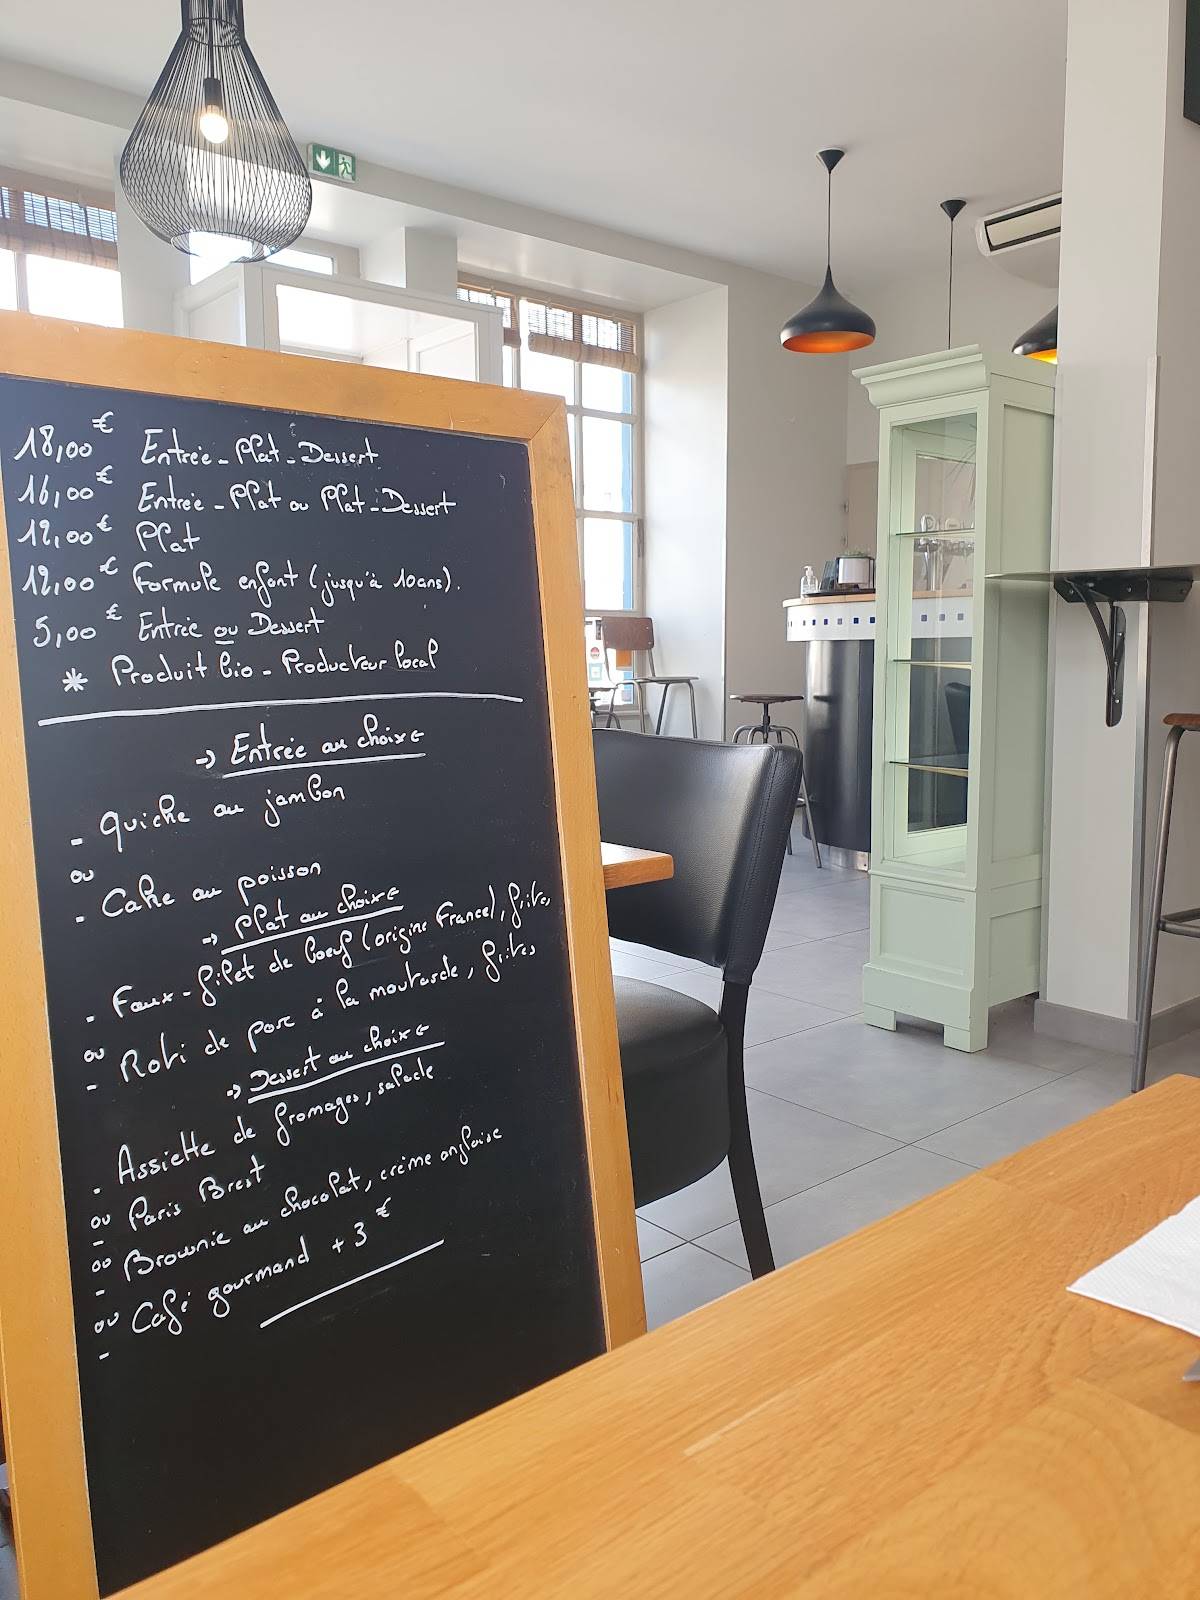 18,00€ Entrée - Plat - Dessert
16,00€ Entrée - Plat ou Plat - Dessert
12,00€ Plat
12,00€ Formule enfant (jusqu'à 10ans).
5,00€ Entrée ou Dessert
* Produit bio - Producteur local
→ Entrée au choix
- Quiche au jambon
ou
- Cake au poisson
→ Plat au choix
- Faux-filet de boeuf (origine France), frites
ou
- Roti de porc à la moutarde, frites
→ Dessert au choix
- Assiette de fromages, salade
ou
- Paris Brest
ou
- Brownie au chocolat, crème anglaise
ou
- Café gourmand + 3 €